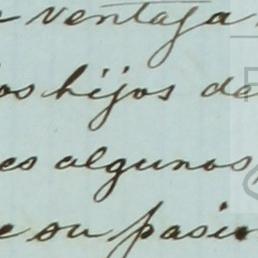 e ventaja
os hijos de
es algunos
e su pasi